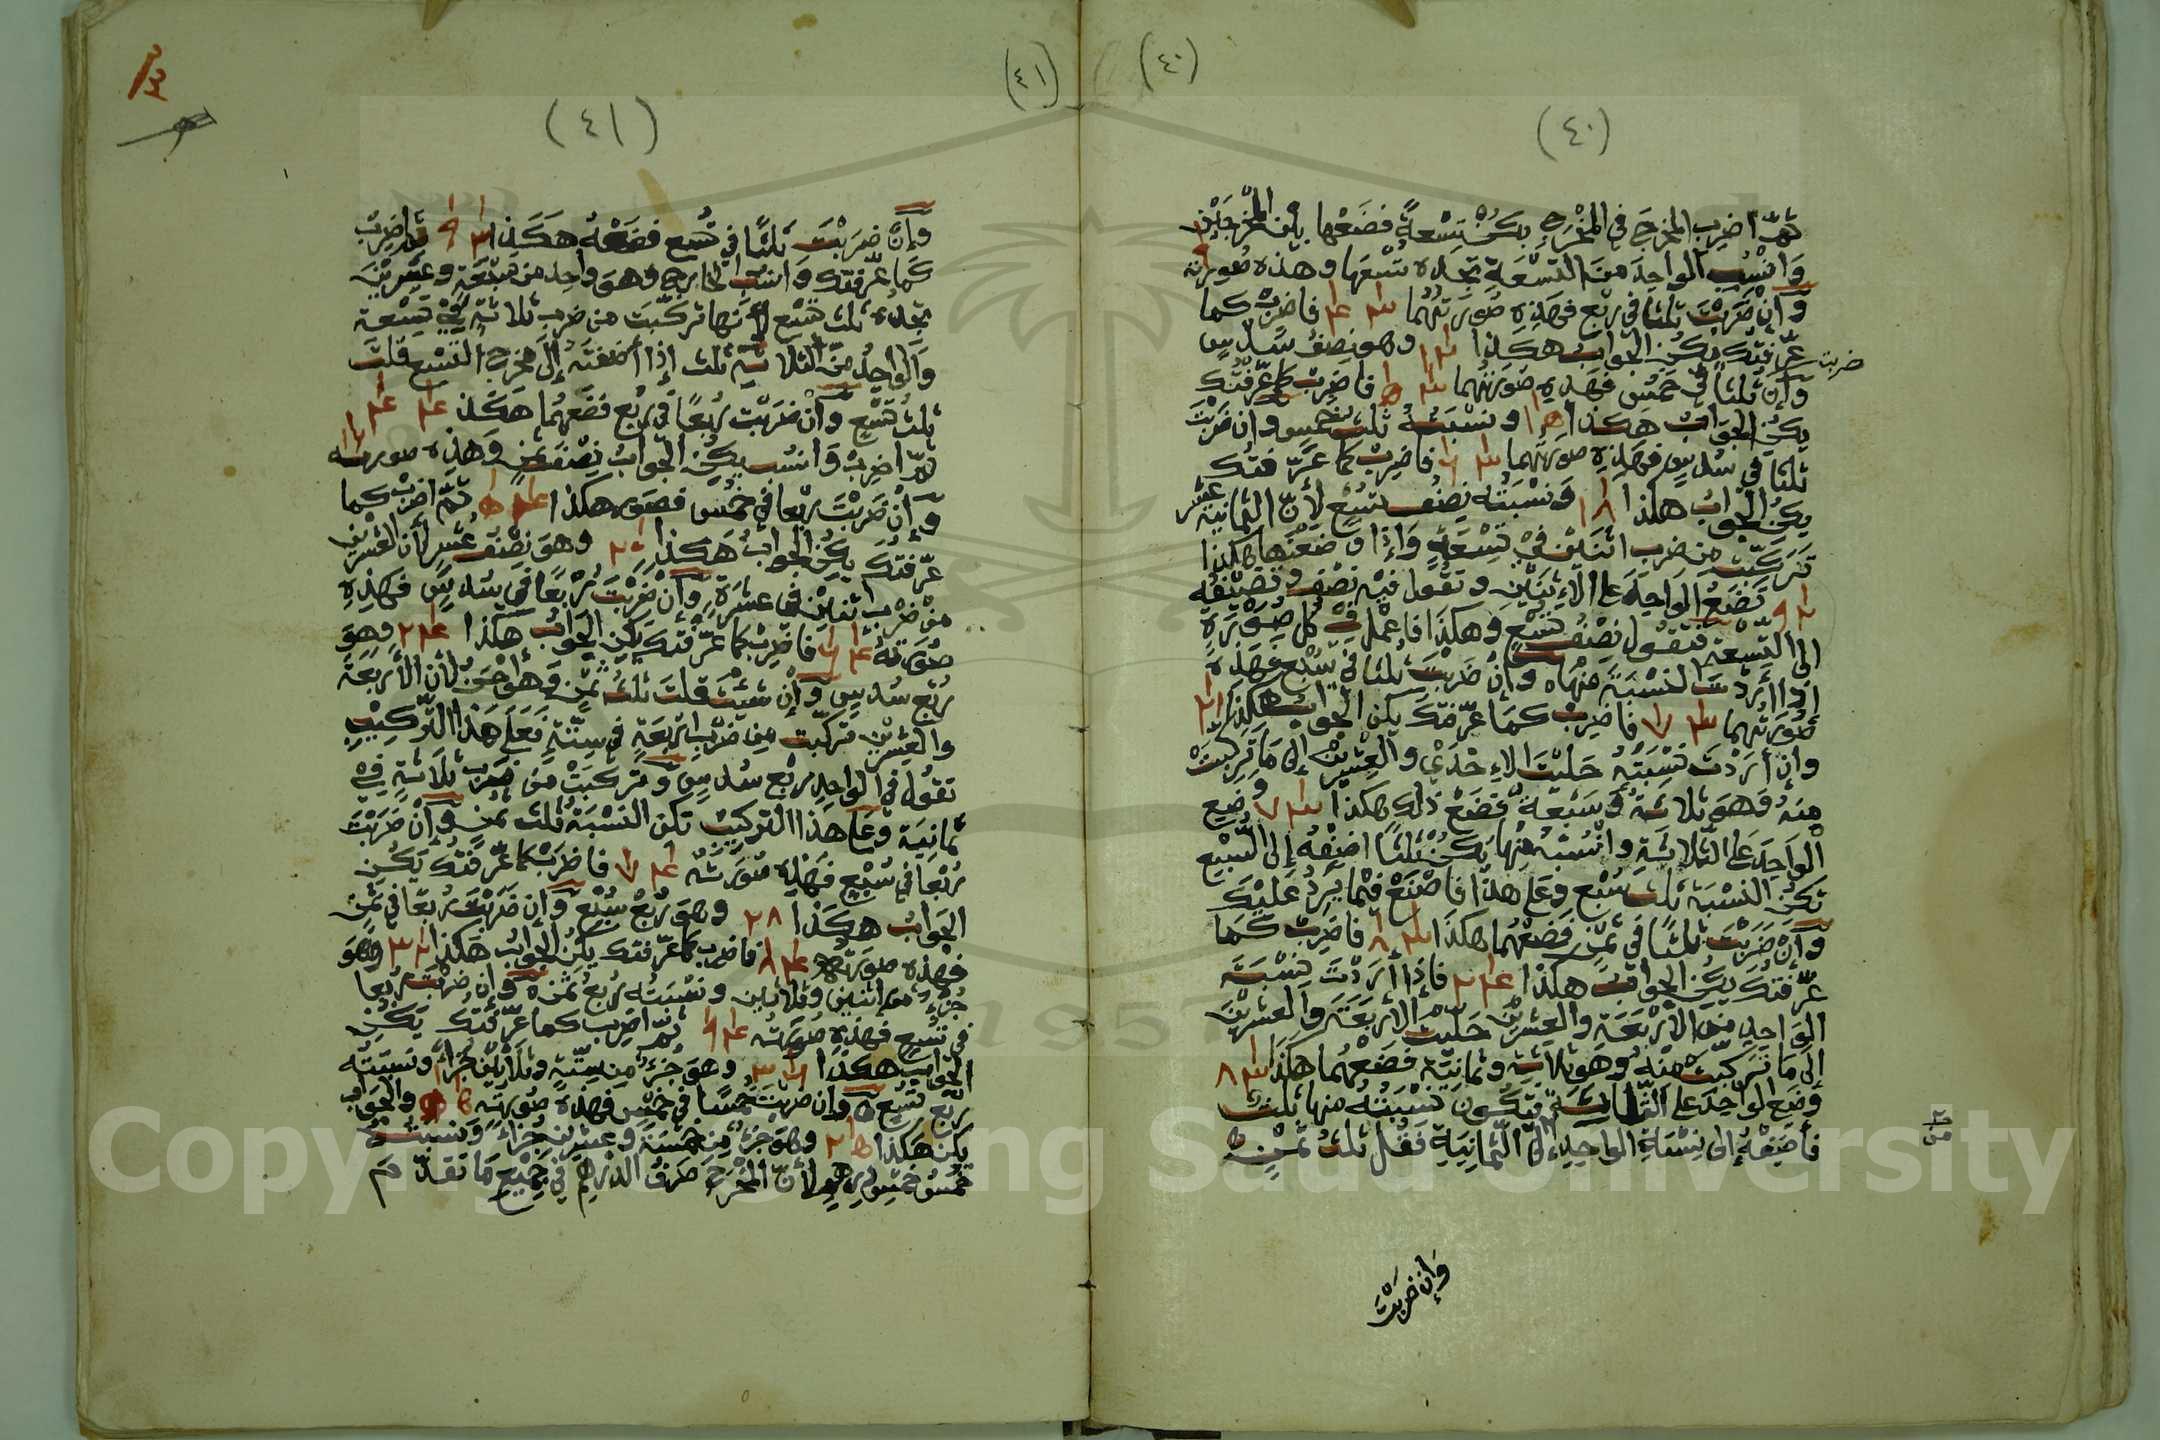 (٤٠)
(٤٠)
ثمّ اضرب المخرج في المخرج يكن تسعةً فضعها بين المخرجين
وانسب الواحد من التسعة تجده تسعها وهذه صورته
وإن ضربت ثلثا في ربع فهذه صورتهما فاضرب كما
عرّفتك يكن الجواب هكذا ١٢ وهو نصف سدس
ضربت
وإن ثلثا في خمس فهذه صورتهما فاضرب كما عرّفتك
يكن الجواب هكذا ونسبته ثلث خمس وان ضربت
ثلثا في سدس فهذه صورتهما فاضرب كما عرّفتك
يكن الجواب هكذا ١٨ ونسبته نصف تسع لأنّ الثمانية عشر
تركبت من ضرب اثنين في تسعة وإذا وضعتها هكذا
تضع الواحد على الاثنين وتقول فيه نصف وتضيفه
الى التسعة فتقول نصف تسع وهكذا فاعمل في كل صورة
إذا أردت النسبة منها وإن ضربت ثلثا في سبع فهذه
صورتهما فاضرب كما عرّفتك يكن الجواب هكذا ٢١
وإن أردت نسبته حليت الإحدى والعشرين إلى ما تركبت
منه وهو ثلاثة في سبعة فضع ذلك هكذا وضع
الواحد على الثلاثة وانسبه منها يكن ثلثا اضفه إلى السبع
تكن النسبة ثلث سبع وعلى هذا فاصنع فيما يرد عليك
وإن ضربت ثلثا في ثمن فضعهما هكذا فاضرب كما
عرّفتك يكن الجواب هكذا ٢٤ فاذا أردت نسبة
الواحد من الأربعة والعشرين حليت الأربعة والعشرين
إلى ما تركبت منه وهو ثلاثة وثمانية فضعهما هكذا
وضع الواحد على الثلاثة فتكون نسبته منها ثلث
فأضفه إلى نسبة الواحد إلى الثمانية فقل ثلث ثمن
وإن ضربت
(٤١)
(٤١)
وإن ضربت ثلثا في تسع فضعه هكذا ثم اضرب
كما عرّفتك وانسب الخارج وهو واحد من سبعة وعشرين
تجده ثلث تسع لأنها تركبت من ضرب ثلاثة في تسعة
والواحد من الثلاثة ثلث إذا أضفته إلى مخرج التسع قلت
ثلث تسع وان ضربت ربعا في ربع فضعهما هكذا
ثمّ اضرب وانسب يكن الجواب نصف ثمن وهذه صورته
وإن ضربت ربعا في خمس فصوره هكذا ثمّ اضرب كما
عرّفتك يكن الجواب هكذا ٢٠ وهو نصف عشر لأن العشرين
من ضرب اثنين في عشرة وإن ضربت ربعا في سدس فهذه
صورته فاضرب كما عرّفتك يكن الجواب هكذا ٢٤ وهو
ربع سدس وإن شئت قلت ثلث ثمن وهو أحسن لأن الأربعة
والعشرين تركبت من ضرب أربعة في ستة فعلى هذا التركيب
تقول في الواحد ربع سدس وتركبت من ضرب ثلاثة في
ثمانية وعلى هذا التركيب تكن النسبة ثلث ثمن وإن ضربت
ربعا في سبع فهذه صورته فاضرب كما عرّفتك يكن
الجواب هكذا ٢٨ وهو ربع سبع وإن ضربت ربعا في ثمن
فهذه صورته فاضرب كما عرّفتك يكن الجواب هكذا ٣٢ وهو
جزء من اثنين وثلاثين ونسبته ربع ثمن وإن ضربت ربعا
في تسع فهذه صورته ثمّ اضرب كما عرّفتك يكن
الجواب هكذا ٣٦ وهو جزء من ستة وثلاثين جزأ ونسبته
ربع تسع وإن ضربت خمسا في خمس فهذه صورته والجواب
يكن هكذا وهو جزء من خمسة وعشرين جزءا ونسبته
خمس خمس لأنّ المخرج صرف الدرهم في جميع ما تقدّم
Copyright © King Saud University
1957